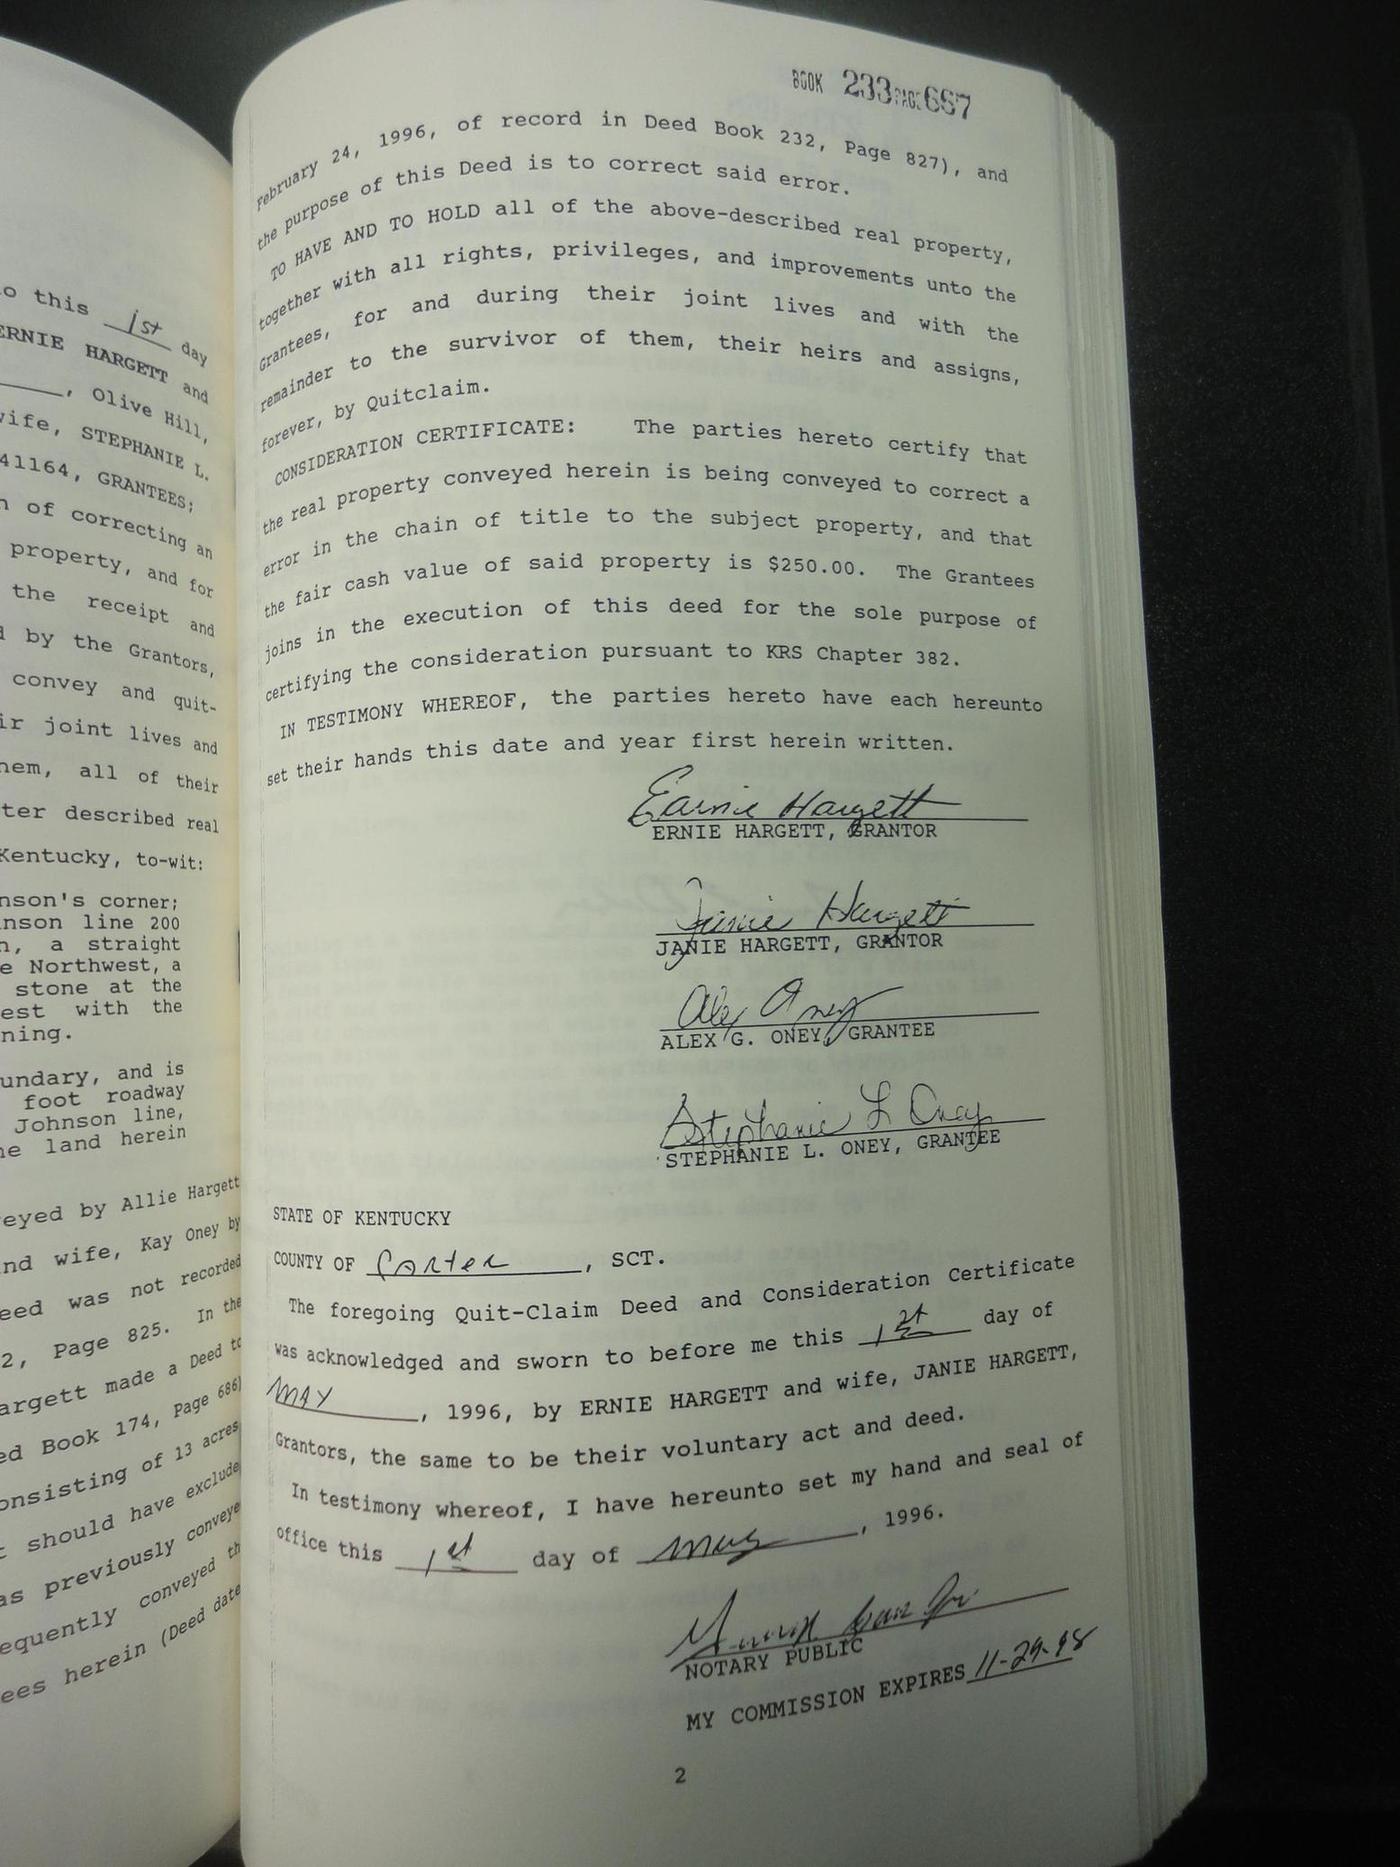 o this 1st day
ERNIE HARGETT and
, Olive Hill,
wife, STEPHANIE L.
41164, GRANTEES;
n of correcting an
property, and for
the receipt and
d by the Grantors,
convey and quit-
ir joint lives and
hem, all of their
ter described real
Kentucky, to-wit:
nson's corner;
nson line 200
n, a straight
e Northwest, a
stone at the
est with the
ning.
undary, and is
foot roadway
Johnson line,
he land herein
eyed by Allie Hargett
nd wife, Kay Oney by
eed was not recorded
2, Page 825. In the
argett made a Deed to
ed Book 174, Page 686)
onsisting of 13 acres
t should have exclude
as previously conveye
equently conveyed th
ees herein (Deed date
BOOK 233 PAGE 667
February 24, 1996, of record in Deed Book 232, Page 827), and
the purpose of this Deed is to correct said error.
TO HAVE AND TO HOLD all of the above-described real property,
together with all rights, privileges, and improvements unto the
Grantees, for and during their joint lives and with the
remainder to the survivor of them, their heirs and assigns,
forever, by Quitclaim.
CONSIDERATION CERTIFICATE: The parties hereto certify that
the real property conveyed herein is being conveyed to correct a
error in the chain of title to the subject property, and that
the fair cash value of said property is $250.00. The Grantees
joins in the execution of this deed for the sole purpose of
certifying the consideration pursuant to KRS Chapter 382.
IN TESTIMONY WHEREOF, the parties hereto have each hereunto
set their hands this date and year first herein written.
Earnie Hargett
ERNIE HARGETT, GRANTOR
Janie Hargett
JANIE HARGETT, GRANTOR
Alex Oney
ALEX G. ONEY, GRANTEE
Stephanie L Oney
STEPHANIE L. ONEY, GRANTEE
STATE OF KENTUCKY
COUNTY OF Carter, SCT.
The foregoing Quit-Claim Deed and Consideration Certificate
was acknowledged and sworn to before me this 1st day of
MAY, 1996, by ERNIE HARGETT and wife, JANIE HARGETT,
Grantors, the same to be their voluntary act and deed.
In testimony whereof, I have hereunto set my hand and seal of
office this 1st day of May, 1996.
NOTARY PUBLIC
MY COMMISSION EXPIRES 11-29-98
2